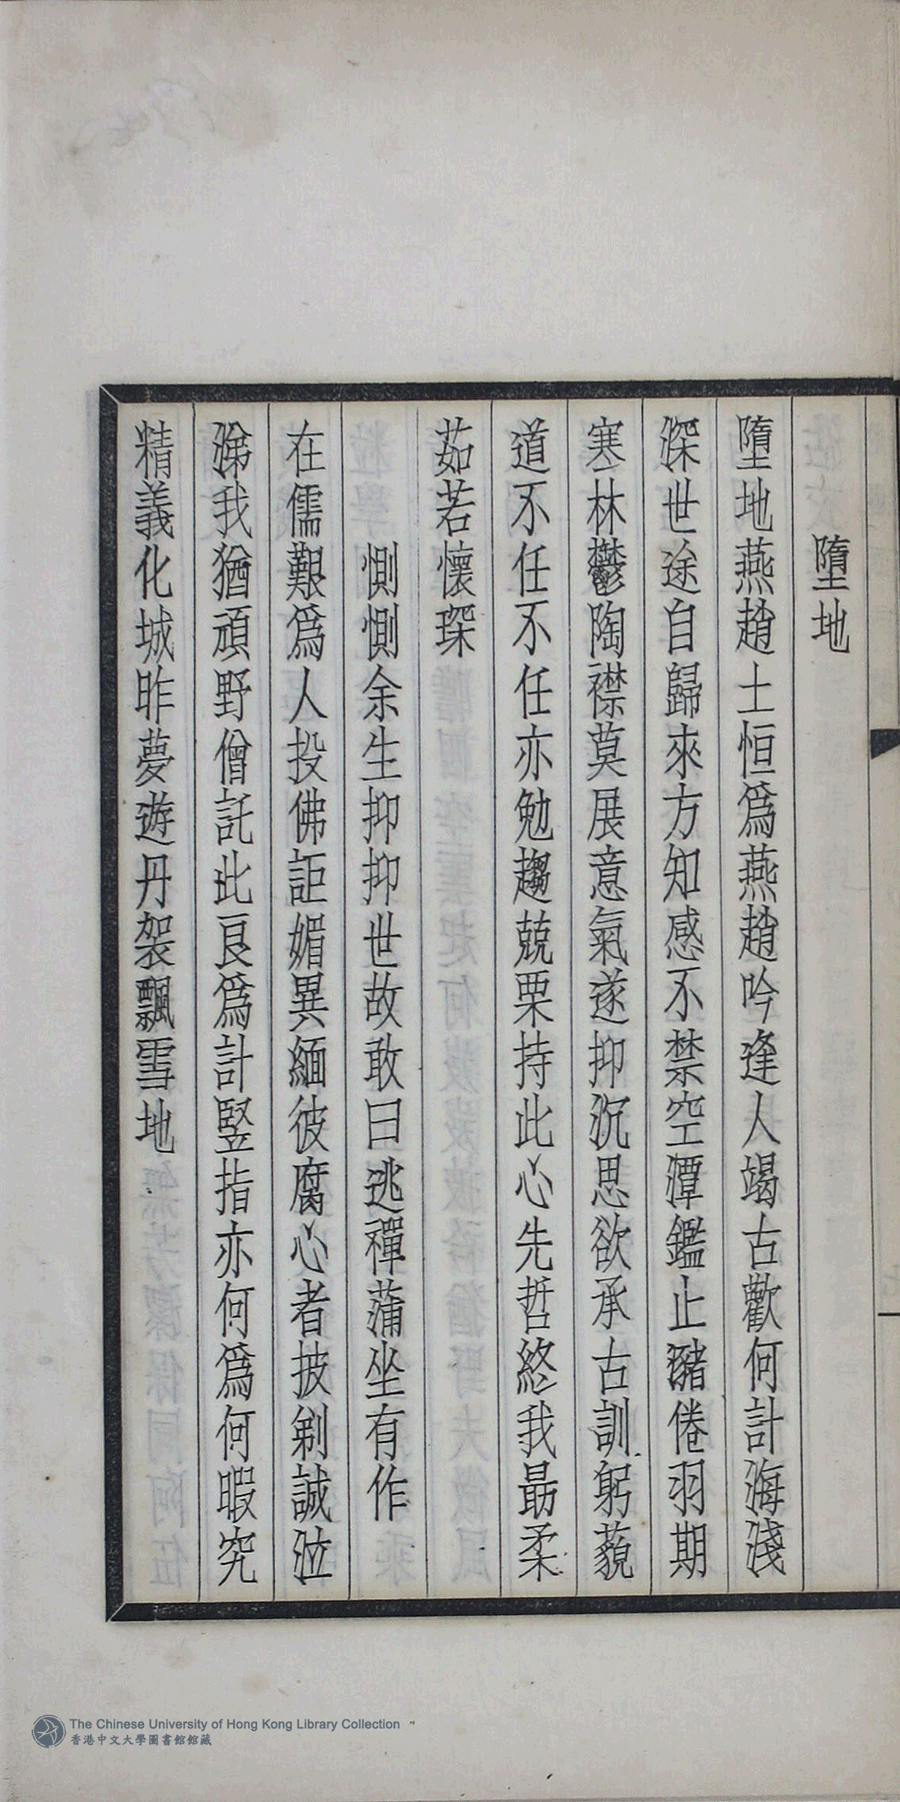 墮地
墮地燕趙士恒爲燕趙吟逢人竭古歡何計海淺
深世途自歸來方知感不禁空潭鑑止豬倦羽期
寒林鬱陶襟莫展意氣遂抑沉思欲承古訓躬藐
道不任不任亦勉趨兢栗持此心先哲終我最柔
茹若懷琛
惻惻余生抑抑世故敢曰逃禪蒲坐有作
在儒艱爲人投佛詎媚異緬彼腐心者披剃誠泣
涕我猶頑野僧託此良爲計竪指亦何爲何暇究
精義化城昨夢遊丹袈飄雪地
The Chinese University of Hong Kong Library Collection
香港中文大學圖書館館藏